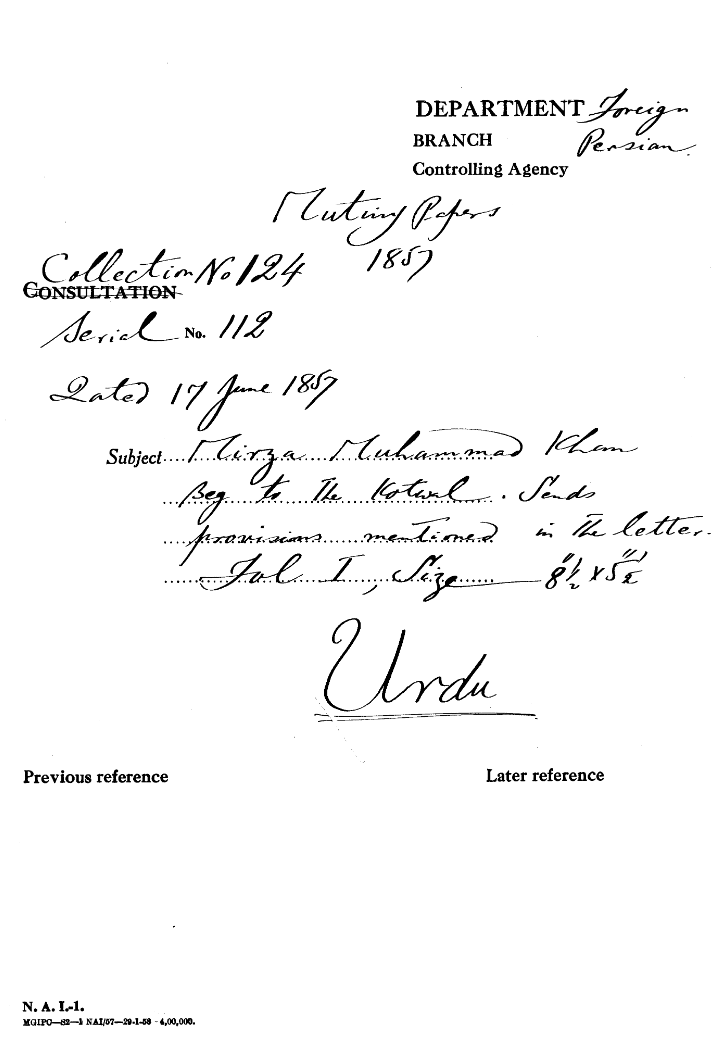 DEPARTMENT Foreign
BRANCH Persian.
Controlling Agency
Mutiny Papers
1857
Collection No 124
CONSULTATION
Serial No. 112
Dated 17 June 1857
Subject Mirza Muhammad Khan
Beg to The Kotwal. Sends
provisions mentioned in The letter.
Fol I, Size 8½" x 5½"
Urdu
Previous reference
Later reference
N. A. I.-1.
MGIPC—S2—1 NAI/57—29-1-58 - 4,00,000.